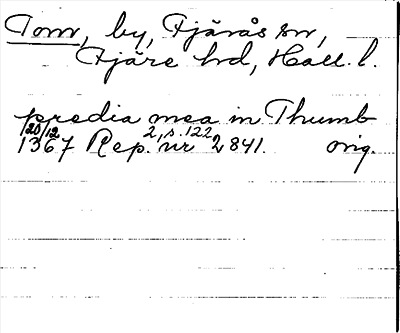 Tom, by, Fjärås sn,
Fjäre hd, Hall. l.
predia mea in Thumb
20/12 2, s. 122
1367 Rep. nr 2841. orig.